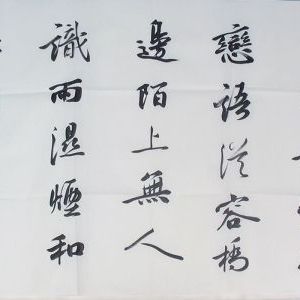 戀語從容橋
邊陌上無人
識雨濕煙和